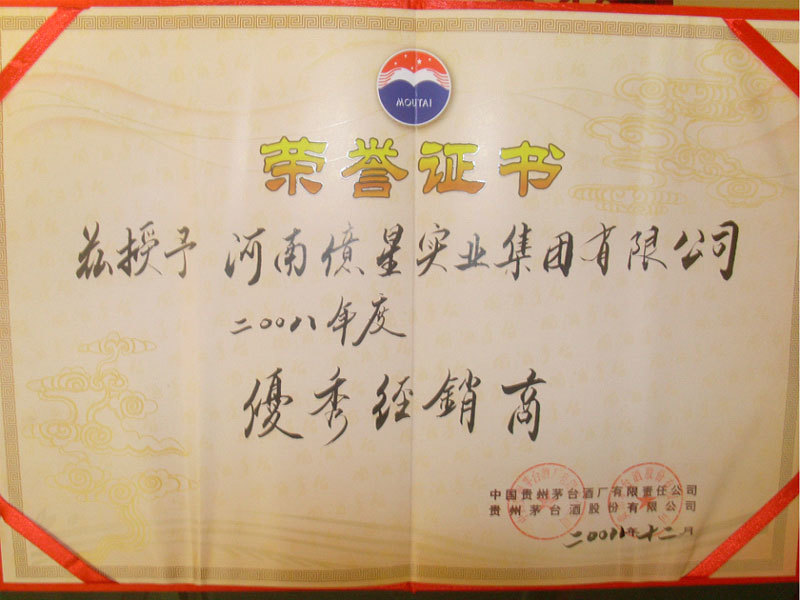 MOUTAI
荣誉证书
兹授予 河南億星实业集团有限公司
二〇〇八年度
優秀经銷商
中国贵州茅台酒厂有限责任公司
贵州茅台酒股份有限公司
二〇〇八年十二月